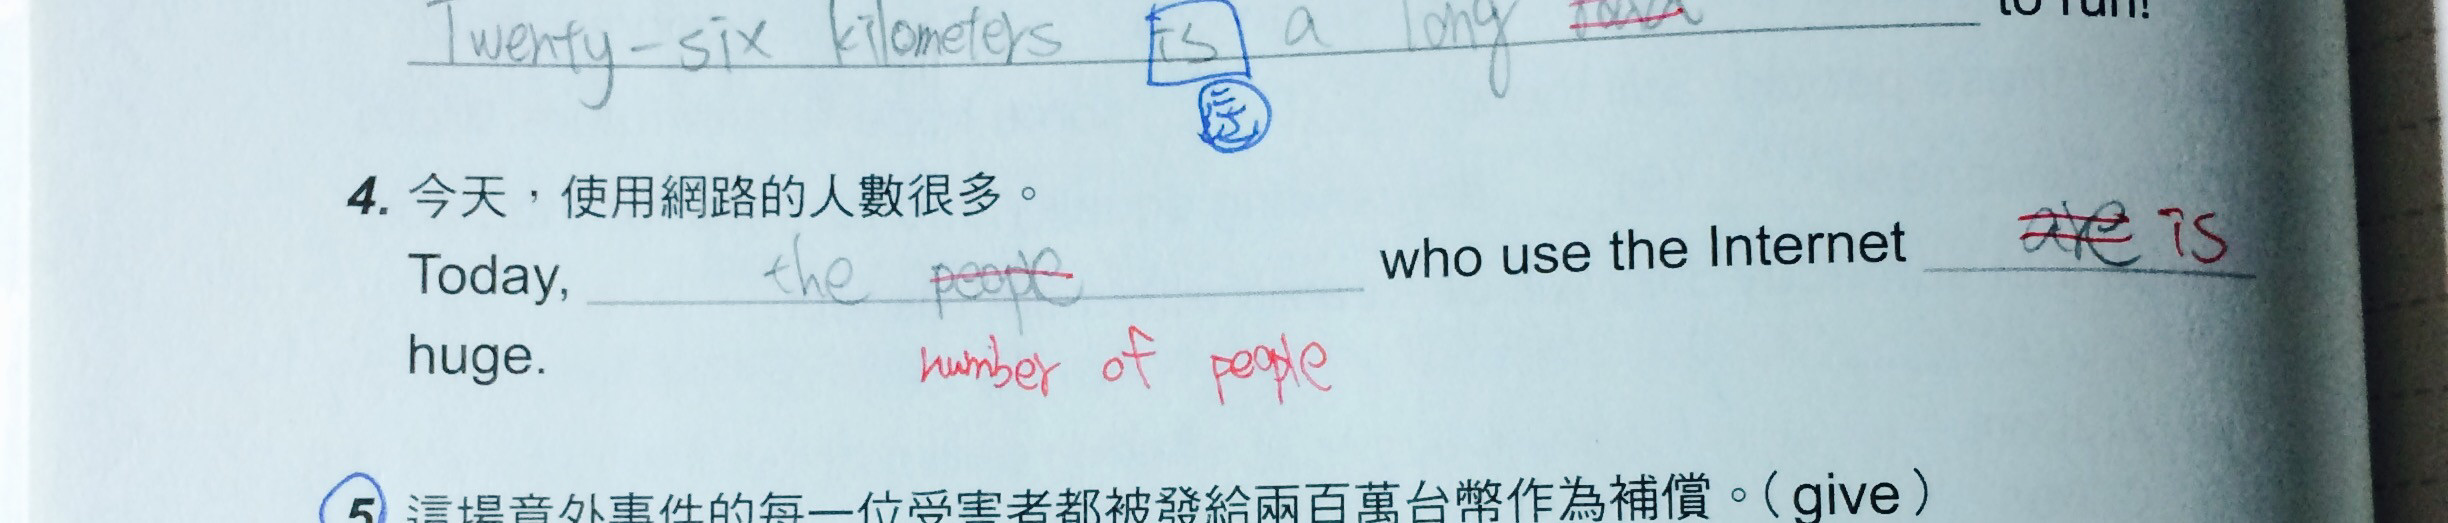 Twenty-six kilometers is a long to run!
4. 今天，使用網路的人數很多。
Today, the people who use the Internet are is
huge. number of people
5 這場意外事件的每一位受害者都被發給兩百萬台幣作為補償。（give）